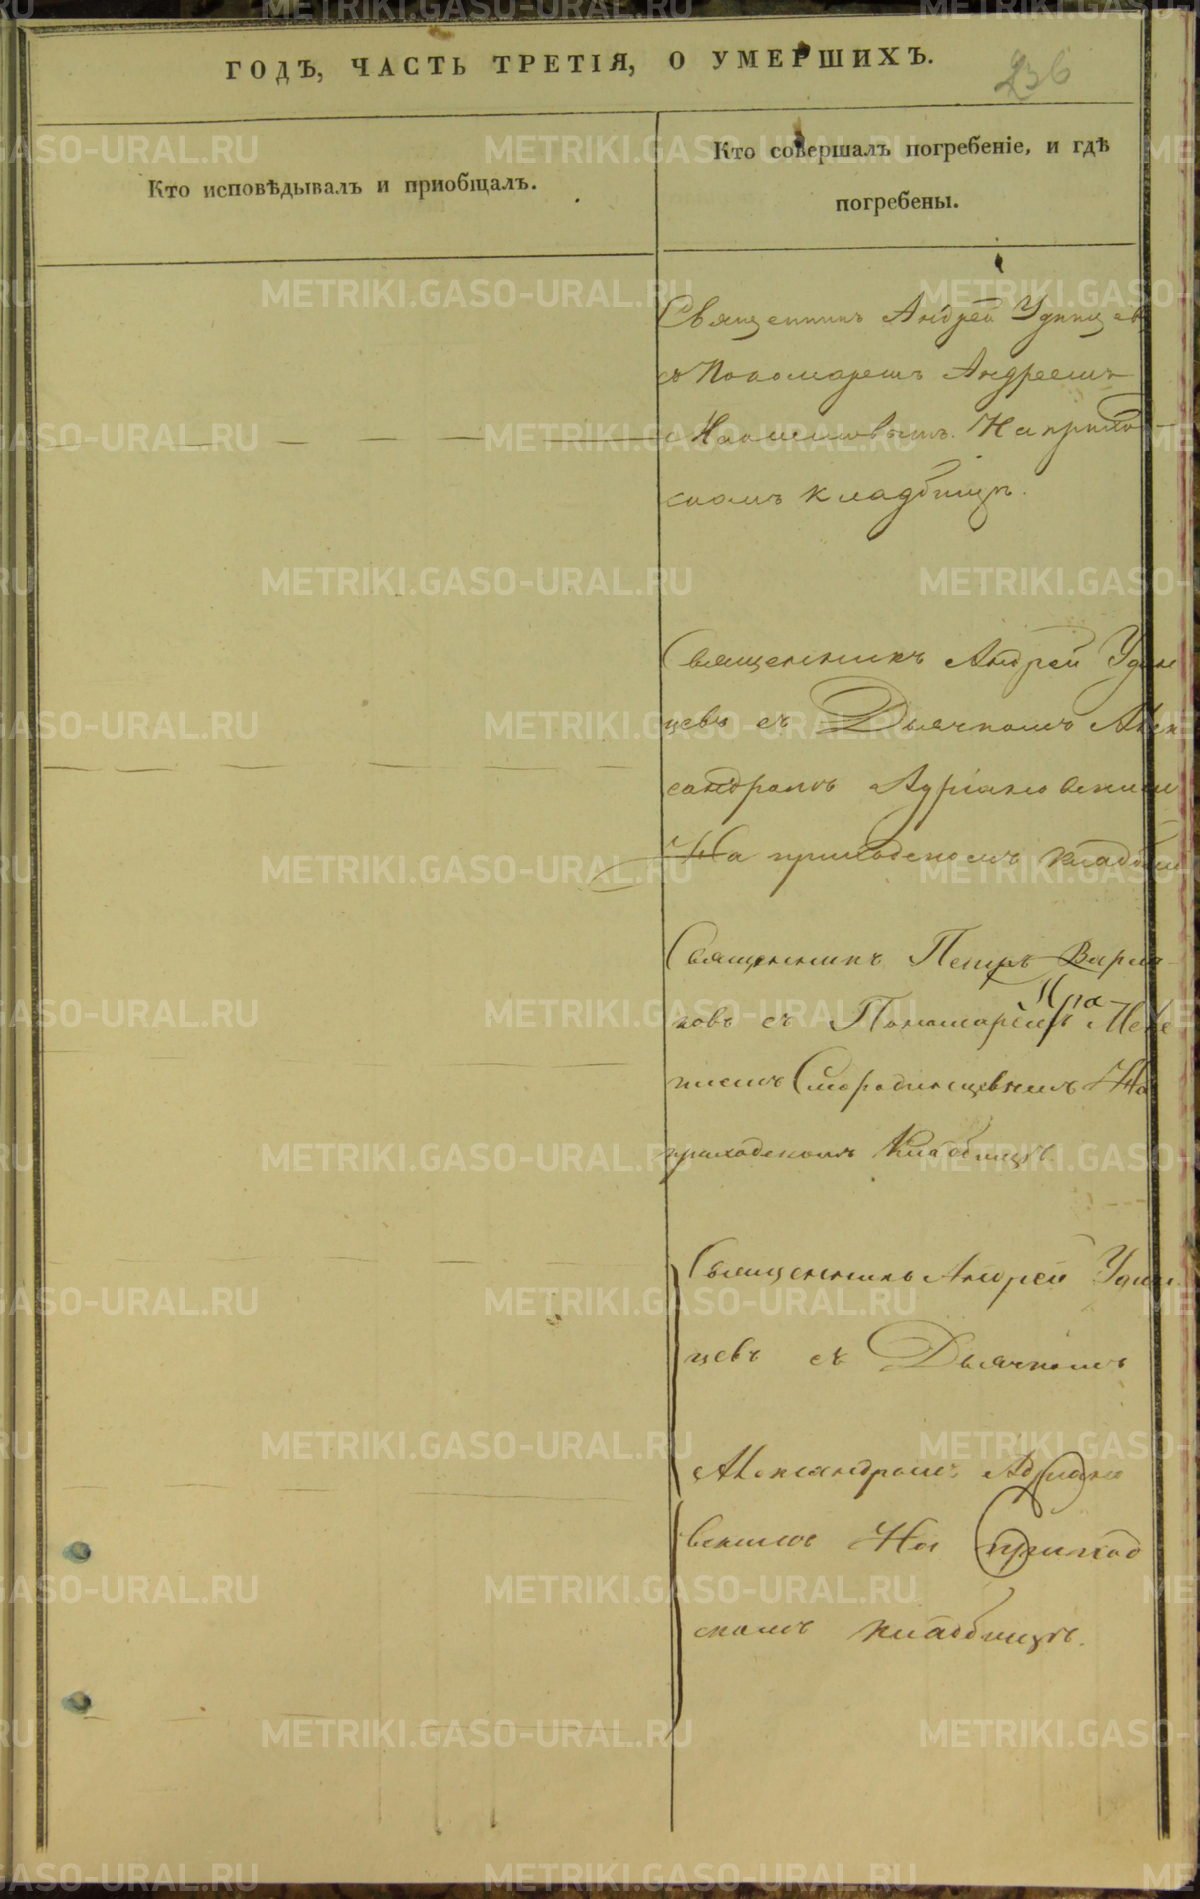 ГОДѢ, ЧАСТЬ ТРЕТІЯ, О УМЕРШИХЪ.
236
Кто исповѣдывалъ и пріобщалъ.
Кто совершалъ погребеніе, и гдѣ
погребены.
Священникъ Андрей Удинцевъ
съ Пономаремъ Андреемъ
На приход
скомъ кладбищѣ.
Священникъ Андрей Удин
цевъ съ Дьячкомъ Алек
сандромъ Адріановскимъ
На приходскомъ кладбищ
Священникъ Петръ
ковъ съ Пономаремъ
Смородинцевымъ На
приходскомъ кладбищѣ.
Священникъ Андрей Удин
цевъ съ Дьячкомъ
Александромъ Адріано
вскимъ На приход
скомъ кладбищѣ.
METRIKI.GASO-URAL.RU